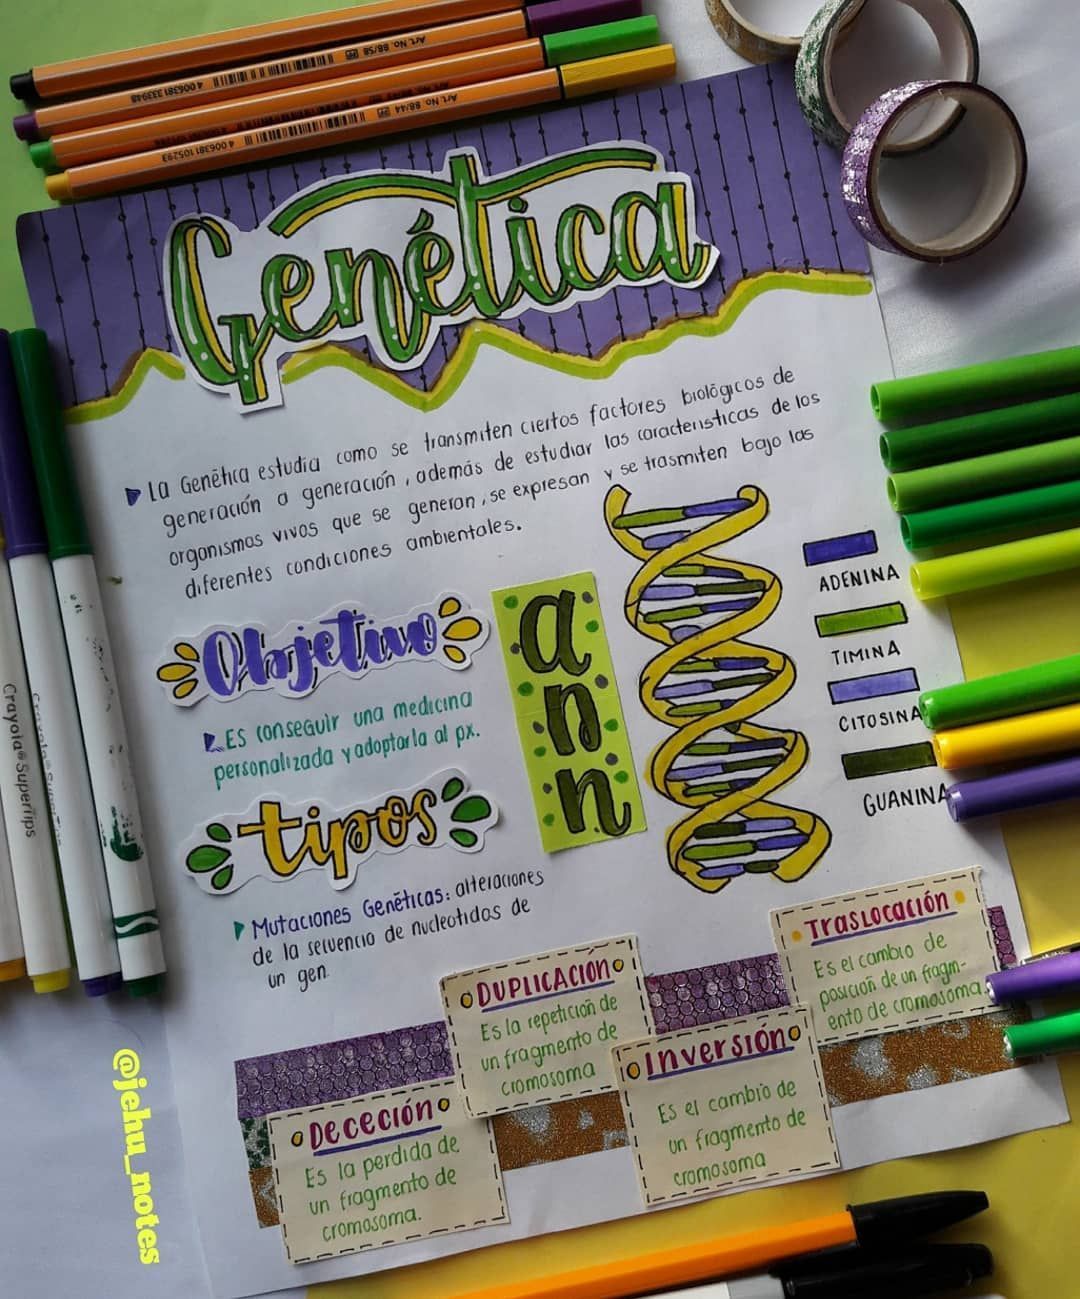 Art. No. 88/58
4 006381 333948
4 006381105293
Art. No. 88/44
Genética
La Genética estudia como se transmiten ciertos factores biológicos de
generación a generación, además de estudiar las caracteristicas de los
organismos vivos que se generan, se expresan y se trasmiten bajo las
diferentes condiciones ambientales.
Objetivo
Es conseguir una medicina
personalizada y adoptarla al px.
adn
ADENINA
TIMINA
CITOSINA
GUANINA
tipos
Mutaciones Genéticas: alteraciones
de la secuencia de nucleotidos de
un gen.
DUPLICACIÓN
Es la repetición de
un fragmento de
cromosoma
Traslocación
Es el cambio de
posición de un fragm-
ento de cromosoma
Dececión
Es la perdida de
un fragmento de
cromosoma.
Inversión
Es el cambio de
un fragmento de
cromosoma
Crayola Supertips
@jehu_notes